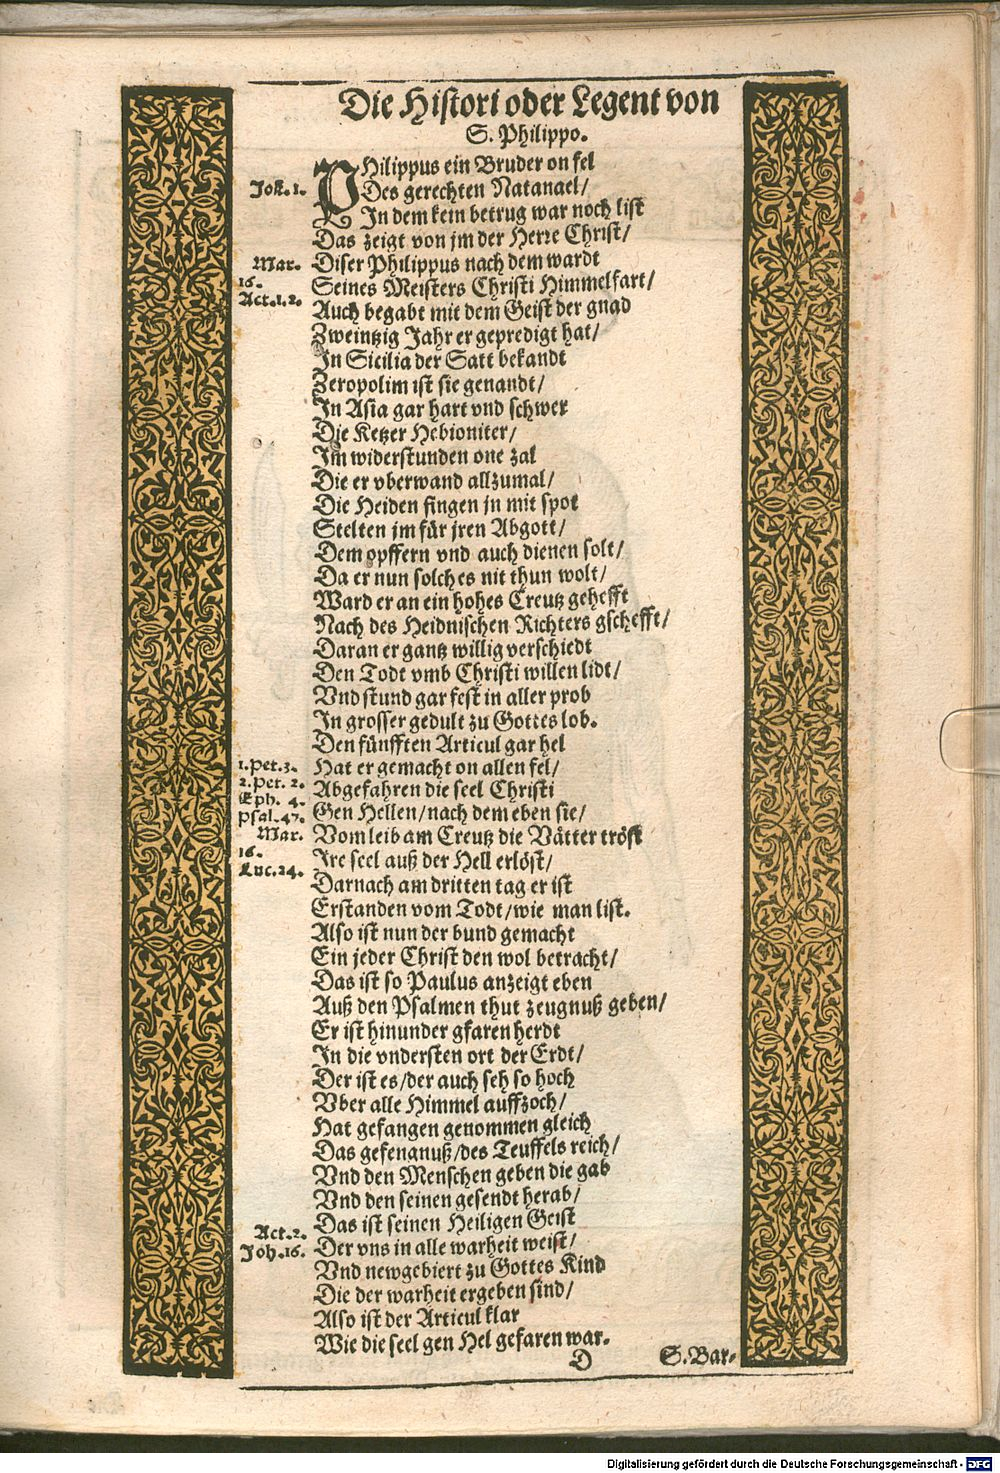 Die Histori oder Legent von
S. Philippo.
PHilippus ein Bruder on fel
Joh. 1.
Des gerechten Natanael/
In dem kein betrug war noch list
Das zeigt von jm der Herre Christ/
Mar.
Diser Philippus nach dem wardt
16.
Seines Meisters Christi Himmelfart/
Act. 1. 2.
Auch begabt mit dem Geist der gnad
Zweintzig Jahr er gepredigt hat/
In Sicilia der Satt bekandt
Zeropolim ist sie genandt/
In Asia gar hart vnd schwer
Die Ketzer Hebioniter/
Im widerstunden one zal
Die er vberwand allzumal/
Die Heiden fingen jn mit spot
Stelten jm für jren Abgott/
Dem opffern vnd auch dienen solt/
Da er nun solches nit thun wolt/
Ward er an ein hohes Creutz gehefft
Nach des Heidnischen Richters gschefft/
Daran er gantz willig verschiedt
Den Todt vmb Christi willen lidt/
Vnd stund gar fest in aller prob
In grosser gedult zu Gottes lob.
Den fünfften Articul gar hel
1. Pet. 3.
Hat er gemacht on allen fel/
2. Pet. 2.
Abgefahren die seel Christi
Eph. 4.
Psal. 47.
Gen Hellen/nach dem eben sie/
Mar.
Vom leib am Creutz die Vätter tröst
16.
Ire seel auß der Hell erlöst/
Luc. 24.
Darnach am dritten tag er ist
Erstanden vom Todt/wie man list.
Also ist nun der bund gemacht
Ein jeder Christ den wol betracht/
Das ist so Paulus anzeigt eben
Auß den Psalmen thut zeugnuß geben/
Er ist hinunder gfaren herdt
In die vndersten ort der Erdt/
Der ist es/der auch seh so hoch
Vber alle Himmel auffzoch/
Hat gefangen genommen gleich
Das gefengnuß/des Teuffels reich/
Vnd den Menschen geben die gab
Vnd den seinen gesendt herab/
Act. 2.
Das ist seinen Heiligen Geist
Joh. 16.
Der vns in alle warheit weist/
Vnd newgebiert zu Gottes Kind
Die der warheit ergeben sind/
Also ist der Articul klar
Wie die seel gen Hel gefaren war.
D
S. Bar-
Digitalisierung gefördert durch die Deutsche Forschungsgemeinschaft - DFG